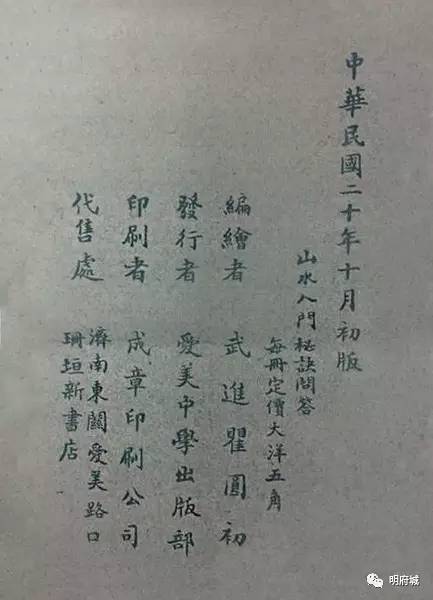 中華民國二十年十月初版
山水入門秘訣問答
每冊定價大洋五角
編繪者 武進瞿圓初
發行者 愛美中學出版部
印刷者 成章印刷公司
代售處 濟南東關愛美路口
珊垣新書店
明府城